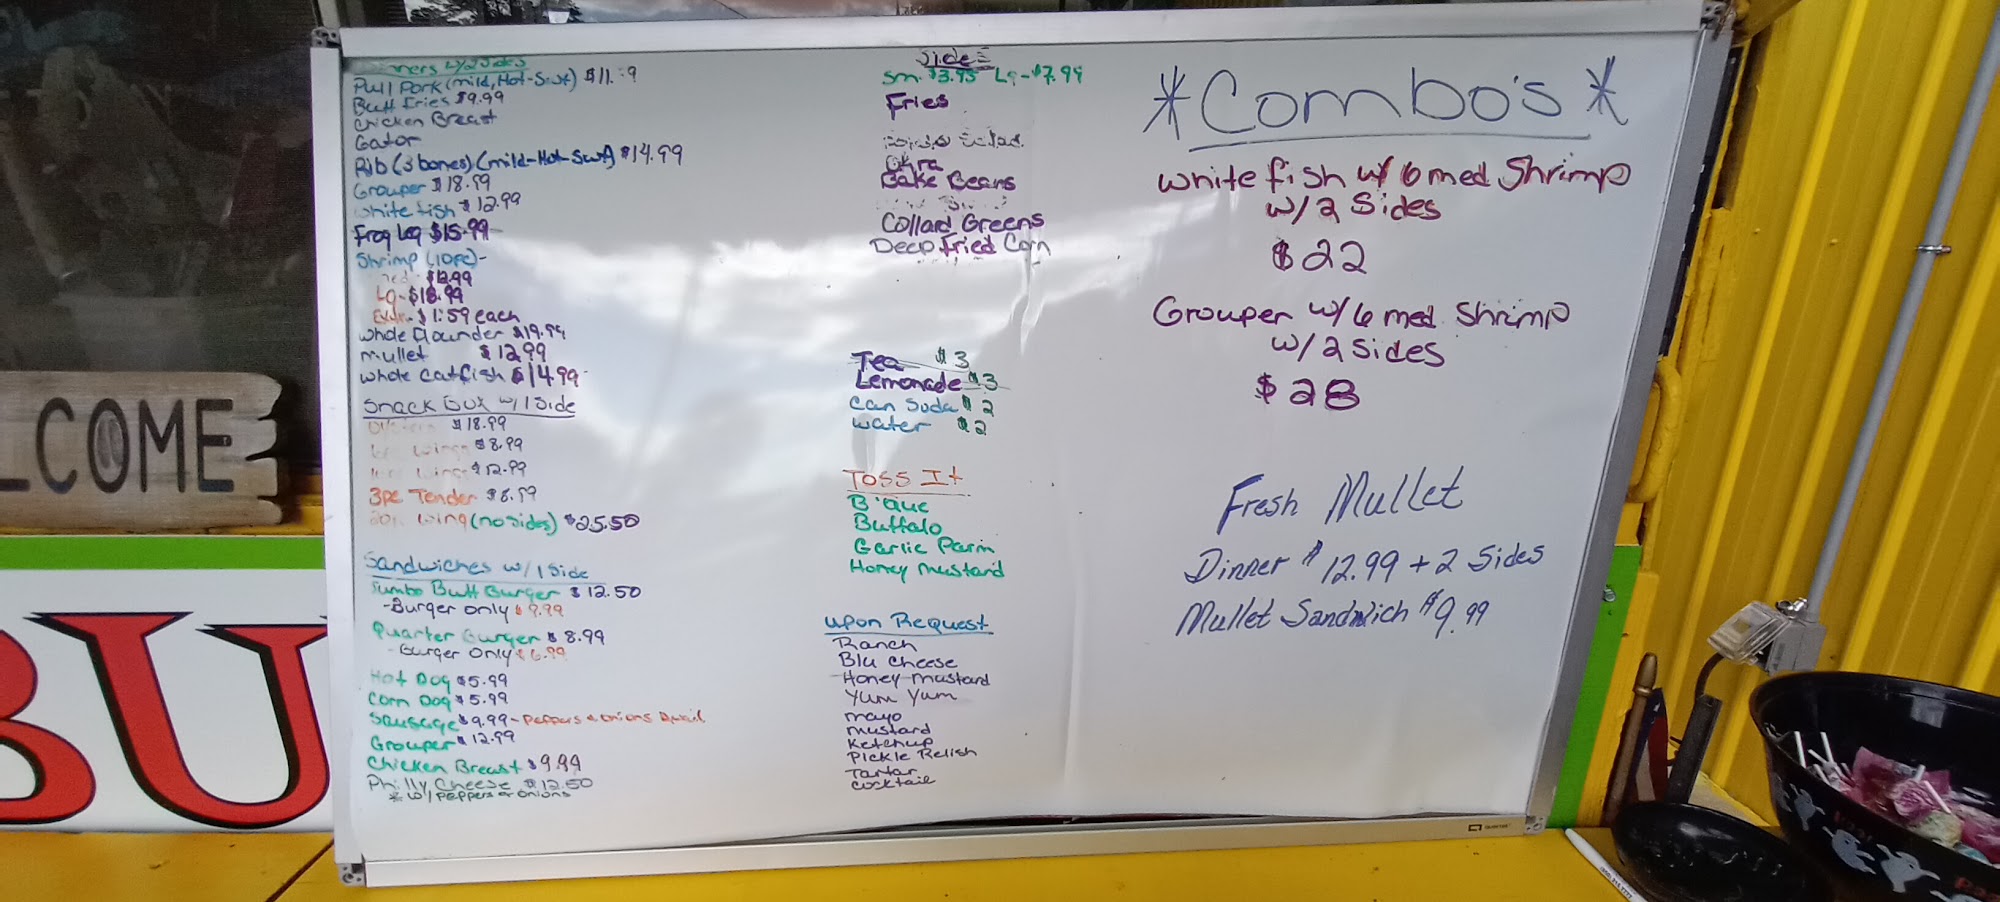 Dinners w/2 Sides
Pull Pork (mild, Hot-Swt) $11.
Butt Fries $9.99
Chicken Breast
Gator
Rib (3 bones) (mild-Hot-Swt) $14.99
Grouper $18.99
White fish $12.99
Frog Leg $15.99
Shrimp (10pc)-
$12.99
Lg-$18.99
$1.59 each
Whole Flounder $19.99
Mullet $12.99
Whole Catfish $14.99
Snack Box w/1 Side
$18.99
Wings $8.99
Wings $12.99
3pc Tender $8.99
Wing (no sides) $25.50
Sandwiches w/1 Side
Jumbo Butt Burger $12.50
-Burger only $9.99
Quarter Burger $8.99
-Burger Only $6.99
Hot Dog $5.99
Corn Dog $5.99
Sausage $9.99-Peppers & Onions
Grouper $12.99
Chicken Breast $9.99
Philly Cheese $12.50
* w/ Peppers & Onions
Sides
Sm. $3.95 Lg-$7.99
Fries
Okra
Bake Beans
Collard Greens
Deep Fried Corn
Tea $3
Lemonade $3
Can Soda $2
Water $2
Toss It
B'Que
Buffalo
Garlic Parm
Honey Mustard
Upon Request
Ranch
Blu Cheese
Honey Mustard
Yum Yum
mayo
mustard
Ketchup
Pickle Relish
Tartar
Cocktail
*Combo's*
White fish w/ 6 med Shrimp
w/2 Sides
$22
Grouper w/ 6 med. Shrimp
w/2 Sides
$28
Fresh Mullet
Dinner $12.99 + 2 Sides
Mullet Sandwich $9.99
COME
BU